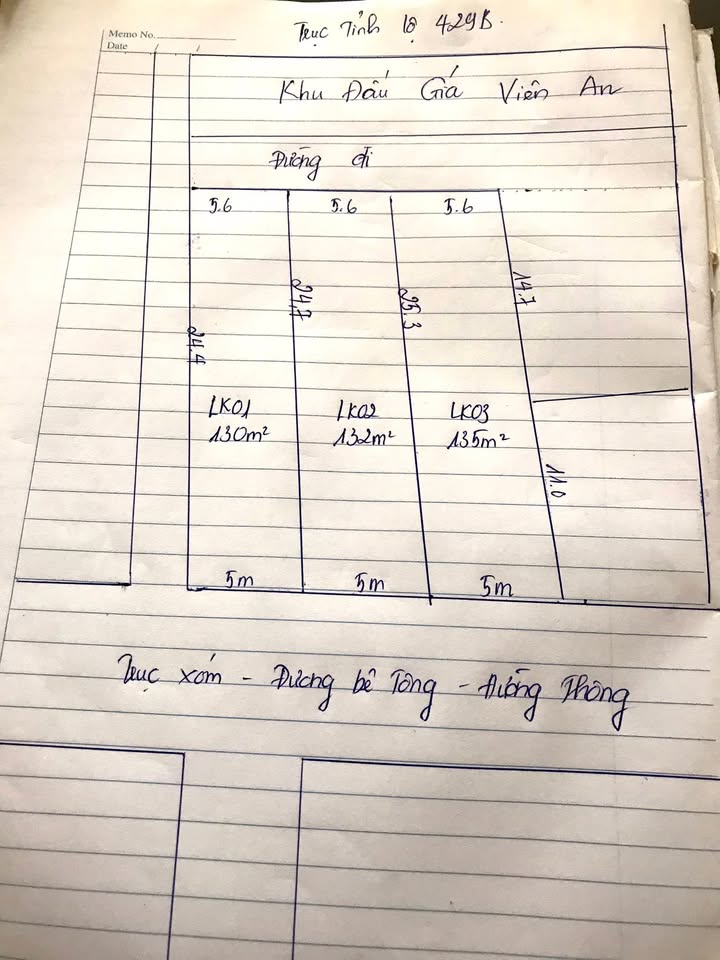 Memo No.
Date / /
Trục Tỉnh lộ 429B.
Khu Đấu Giá Viên An
Đường đi
5.6 5.6 5.6
24.4 24.7 25.3 14.7
LK01 LK02 LK03
130m² 132m² 135m²
11.0
5m 5m 5m
Trục xóm - Đương bê Tông - Đường Thông